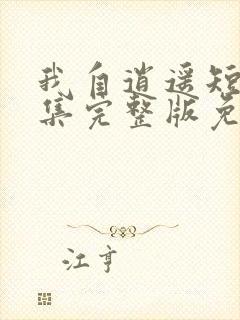 我自逍遥短
集完整版免
江亨